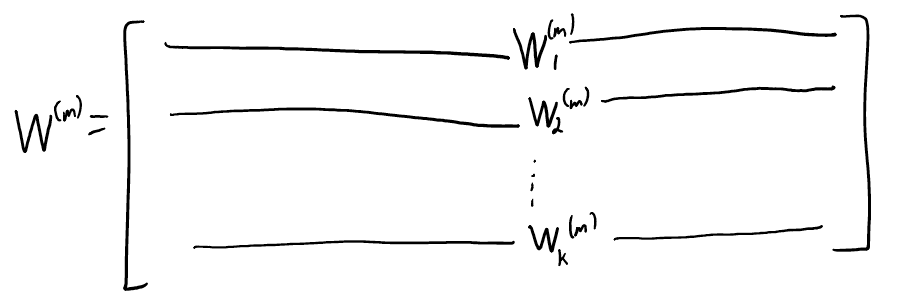 W₁⁽ᵐ⁾
W⁽ᵐ⁾ = [ W₂⁽ᵐ⁾ ]
⋮
Wₖ⁽ᵐ⁾